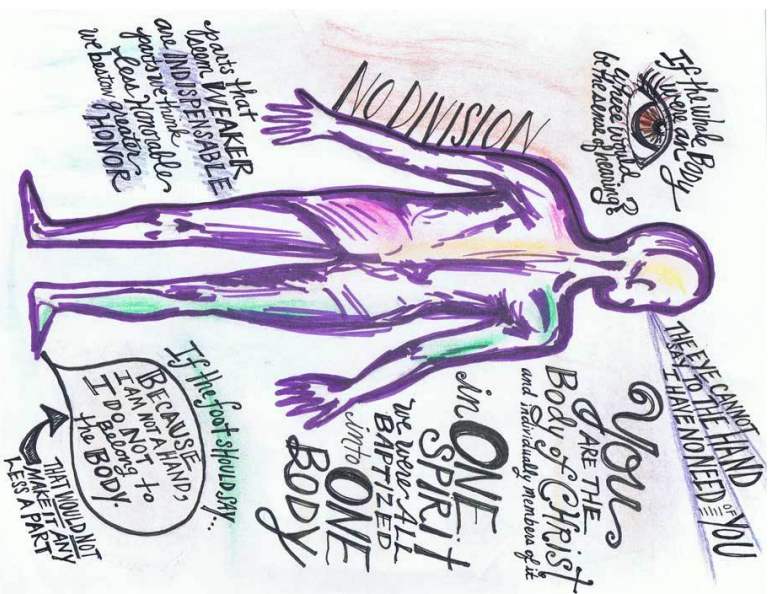 If the whole Body
were an Eye
where would
be the sense of hearing?
NO DIVISION
parts that
seem WEAKER
are INDISPENSABLE
parts we think
less Honorable
we bestow greater
HONOR
THE EYE CANNOT
SAY TO THE HAND
I HAVE NO NEED OF YOU
YOU
ARE THE
Body of CHRIST
and individually members of it
in ONE
SPIRIT
we were ALL
BAPTIZED
into ONE
BODY
If the foot should say...
BECAUSE
I AM NOT A HAND,
I DO NOT
Belong to
the BODY.
THAT WOULD NOT
MAKE IT ANY
LESS A PART